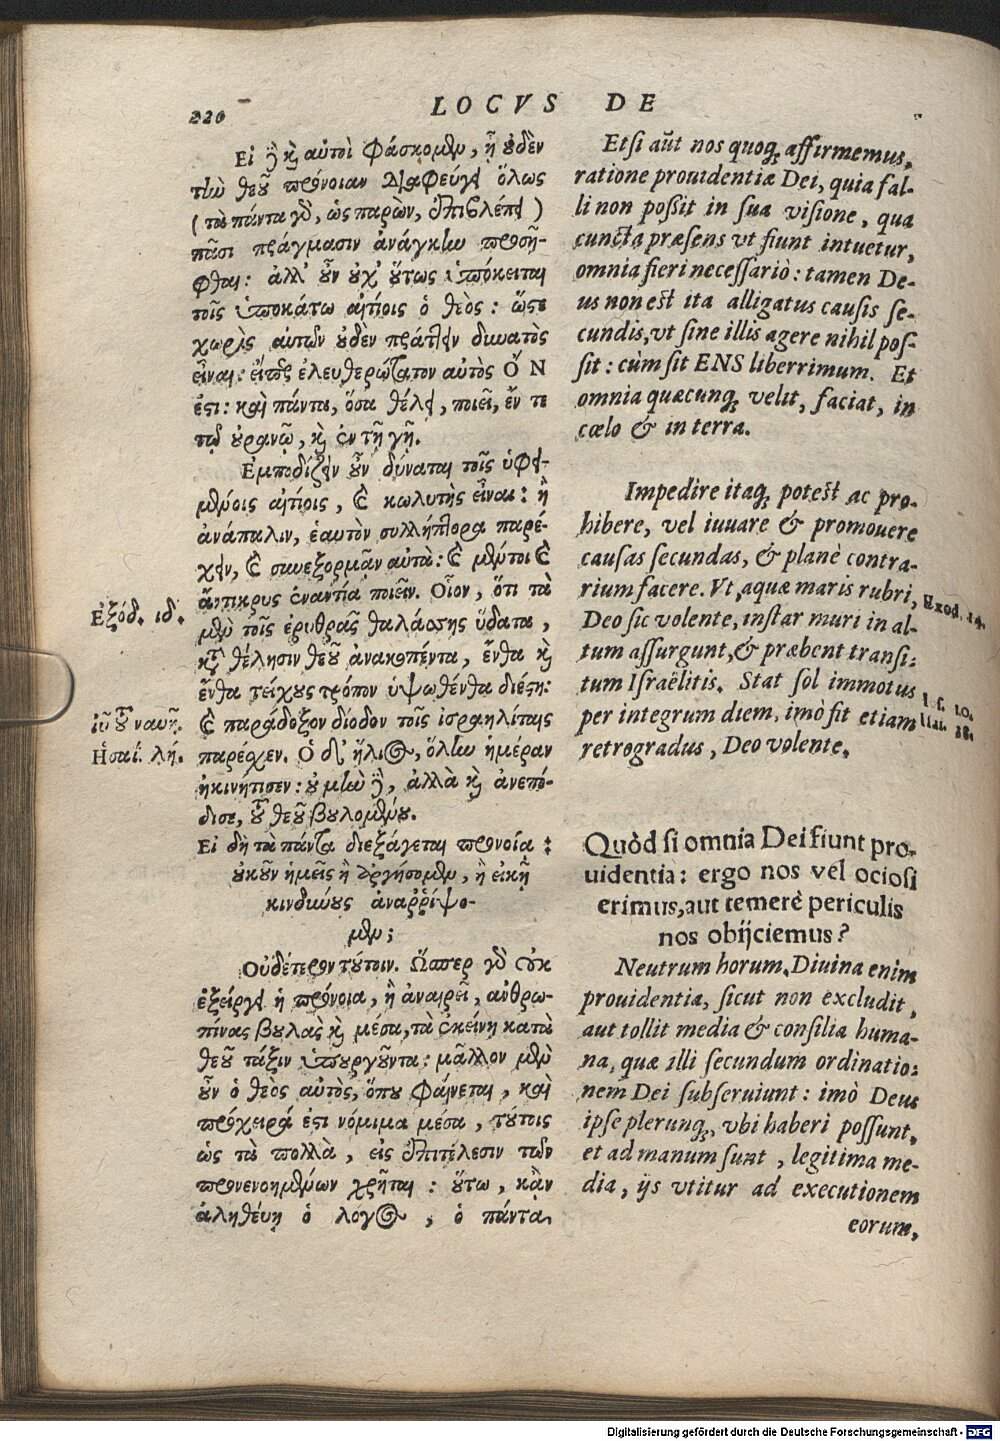 220
LOCVS DE
Εἰ δὲ καὶ αὐτοὶ φάσκομεν, ᾗ οὐδὲν
τὴν θεοῦ πρόνοιαν διαφεύγει ὅλως
(τὰ πάντα γὸ, ὡς παρὼν, ἐπιβλέπει)
πᾶσι πράγμασιν ἀνάγκην προσῆ-
φθαι: ἀλλ' οὖν οὐχ' οὕτως ὑπόκειται
τοῖς ὑποκάτω αἰτίοις ὁ θεὸς: ὥστε
χωρὶς αὐτῶν οὐδὲν πράττειν δυνατὸς
εἶναι: εἴτος ἐλευθερώτατον αὐτὸς ὌΝ
ἐστι: καὶ πάντα, ὅσα θέλει, ποιεῖ, ἔν τε
τῷ οὐρανῷ, καὶ ἐν τῇ γῇ.
Ἐμποδίζειν οὖν δύναται τοῖς ὑφει-
μένοις αἰτίοις, καὶ κωλυτὴς εἶναι: ἢ
ἀνάπαλιν, ἑαυτὸν συλλήπτορα παρέ-
χειν, καὶ συνεξορμᾷν αὐτὰ: καὶ μέντοι καὶ
ἄντικρυς ἐναντία ποιεῖν. Οἷον, ὅτι τὰ
μὲν τοῖς ἐρυθρᾶς θαλάσσης ὕδατα,
κατὰ θέλησιν θεοῦ ἀνακοπέντα, ἔνθα καὶ
ἔνθα τείχους τρόπον ὑψωθέντα διέστη:
καὶ παράδοξον δίοδον τοῖς ἰσραηλίταις
παρέσχεν. Ὁ δὲ ἥλιος, ὅλην ἡμέραν
ἠκινήτισεν: οὐ μὴν δὲ, ἀλλὰ καὶ ἀνεπό-
δισε, τοῦ θεοῦ βουλομένου.
Εἰ δὴ τὰ πάντα διεξάγεται προνοίᾳ:
οὐκοῦν ἡμεῖς ἢ ἀργήσομεν, ἢ εἰκῆ
κινδύνους ἀναῤῥίψο-
μεν;
Οὐδέτερον τούτοιν. Ὥσπερ γὸ οὐκ
ἐξείργει ἡ πρόνοια, ἢ ἀναιρεῖ, ἀνθρω-
πίνας βουλὰς καὶ μέσα, τὰ ἐκείνῃ κατὰ
θεοῦ τάξιν ὑπουργοῦντα: μᾶλλον μὲν
οὖν ὁ θεὸς αὐτὸς, ὅπου φαίνεται, καὶ
πρόχειρά ἐστι νόμιμα μέσα, τούτοις
ὡς τὰ πολλὰ, εἰς ἐπιτέλεσιν τῶν
προνενοημένων χρῆται: οὕτω, κἂν
ἀληθεύῃ ὁ λόγος, ὁ πάντα
Ἐξόδ. ιδ.
ἰησοῦ τοῦ ναυῆ.
Ἡσαΐ. λή.
Etsi aũt nos quoq; affirmemus,
ratione prouidentiæ Dei, quia fal-
li non poßit in sua visione, qua
cuncta præsens vt fiunt intuetur,
omnia fieri necessariò: tamen De-
us non est ita alligatus causis se-
cundis, vt sine illis agere nihil pos-
sit: cùm sit ENS liberrimum. Et
omnia quæcunq; velit, faciat, in
cœlo & in terra.
Impedire itaq; potest ac pro-
hibere, vel iuuare & promouere
causas secundas, & planè contra-
rium facere. Vt, aquæ maris rubri,
Deo sic volente, instar muri in al-
tum assurgunt, & præbent transi-
tum Israëlitis. Stat sol immotus
per integrum diem, imò fit etiam
retrogradus, Deo volente.
Exod. 14.
Ios. 10.
Isai. 38.
Quòd si omnia Dei fiunt pro-
uidentia: ergo nos vel ociosi
erimus, aut temerè periculis
nos obijciemus?
Neutrum horum. Diuina enim
prouidentia, sicut non excludit,
aut tollit media & consilia huma-
na, quæ illi secundum ordinatio-
nem Dei subseruiunt: imò Deus
ipse plerunq;, vbi haberi possunt,
et ad manum sunt, legitima me-
dia, ijs vtitur ad executionem
eorum,
Digitalisierung gefördert durch die Deutsche Forschungsgemeinschaft - DFG